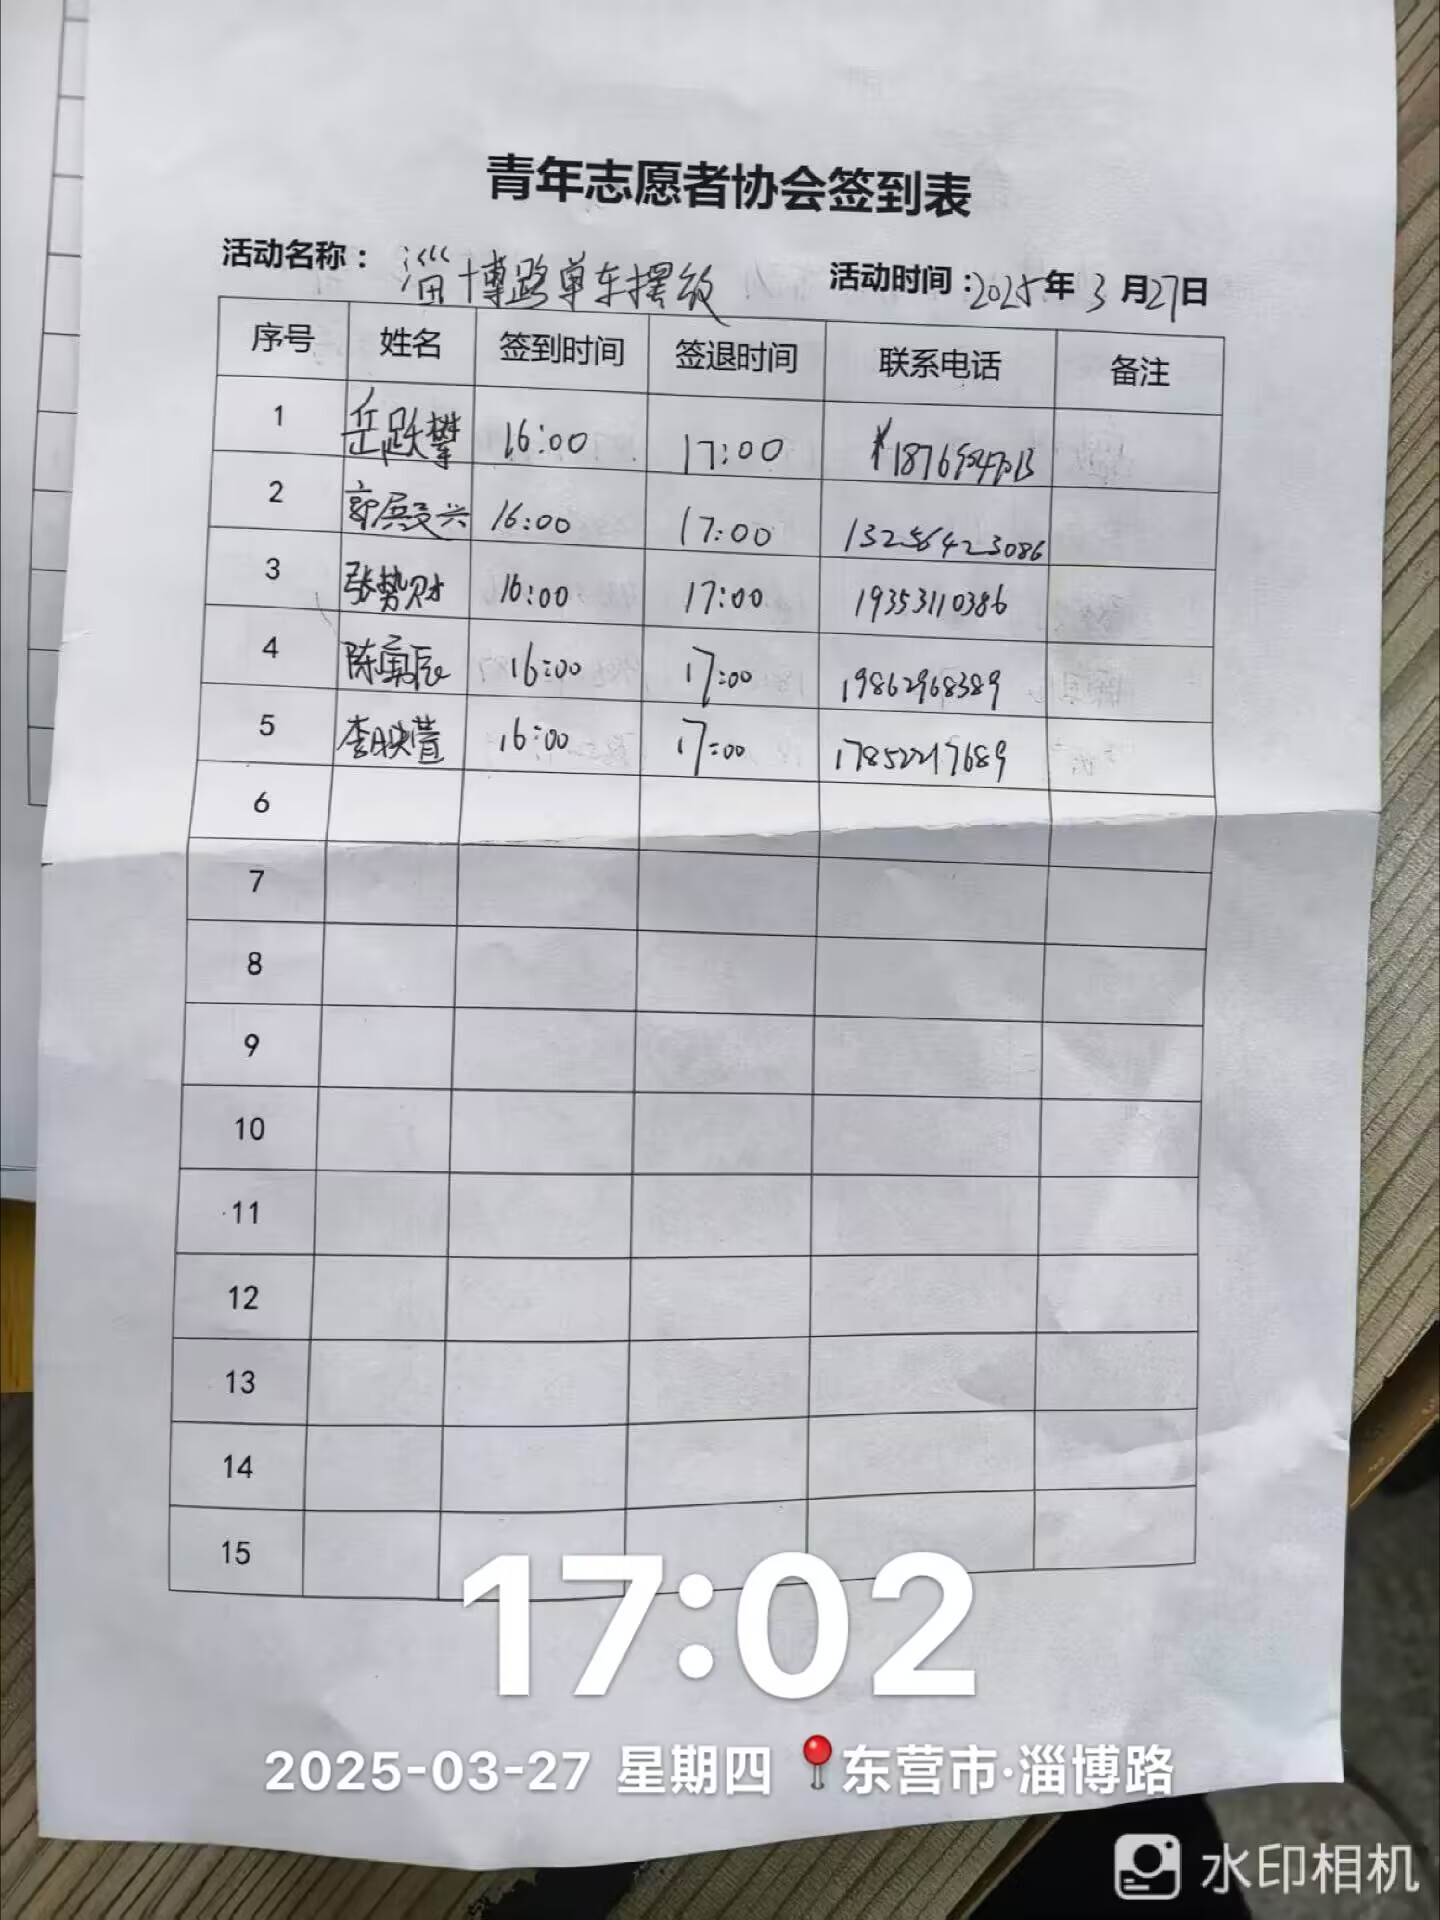 青年志愿者协会签到表
活动名称： 淄博路单车摆放 活动时间：2025年3月27日
序号 姓名 签到时间 签退时间 联系电话 备注
1 岳跃攀 16:00 17:00
2 16:00 17:00 13256423086
3 张势财 16:00 17:00 19353110386
4 陈勇辰 16:00 17:00 19862968389
5 李映萱 16:00 17:00 17852217689
6
7
8
9
10
11
12
13
14
15
17:02
2025-03-27 星期四 东营市·淄博路
水印相机